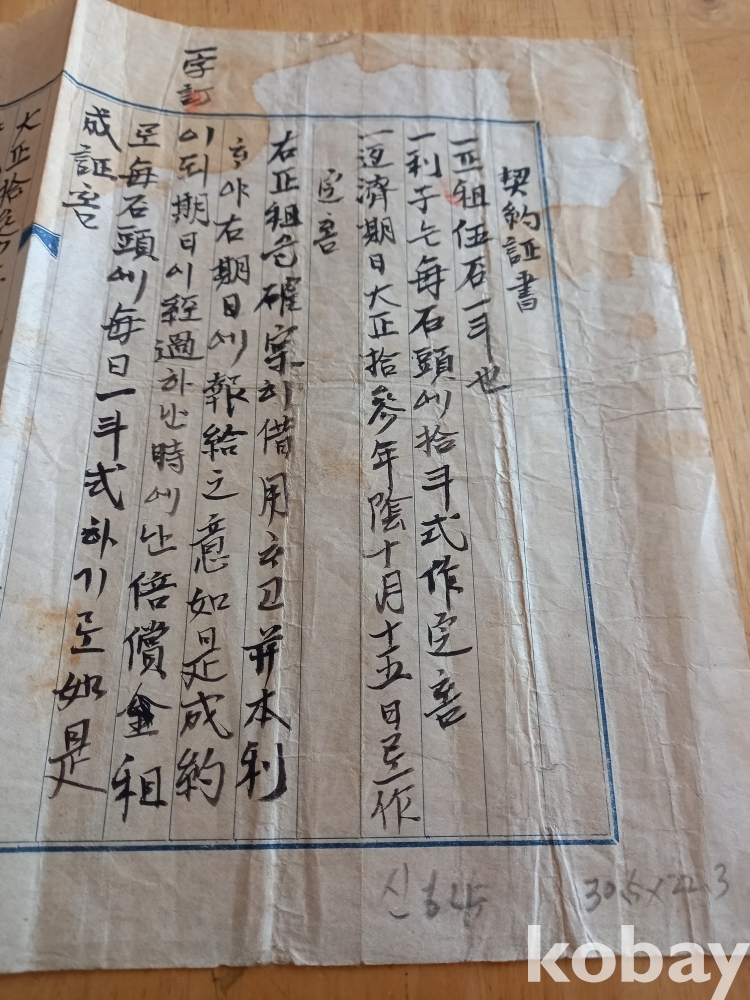 契約証書
一正租伍石一斗也
一利子는每石頭에拾斗式作定홈
一返濟期日大正拾參年陰十月十五日로作
定홈
右正租를確実히借用하고并本利
하야右期日에報給之意如是成約
이되期日이經過하난時에난倍償金租
로每石頭에每日一斗式하기로如是
成証홈
一字訂
大正拾
30.5×22.3
kobay